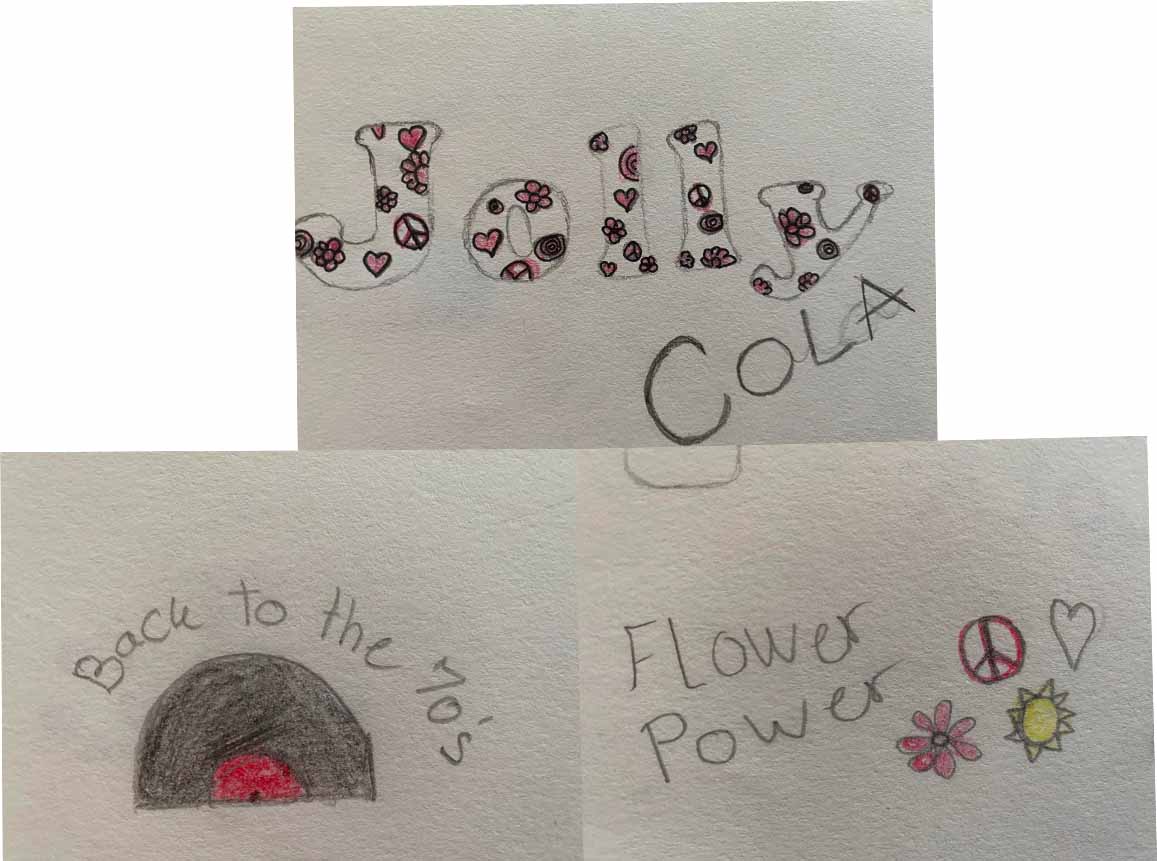 Jolly
COLA
Back to the 70's
Flower
Power